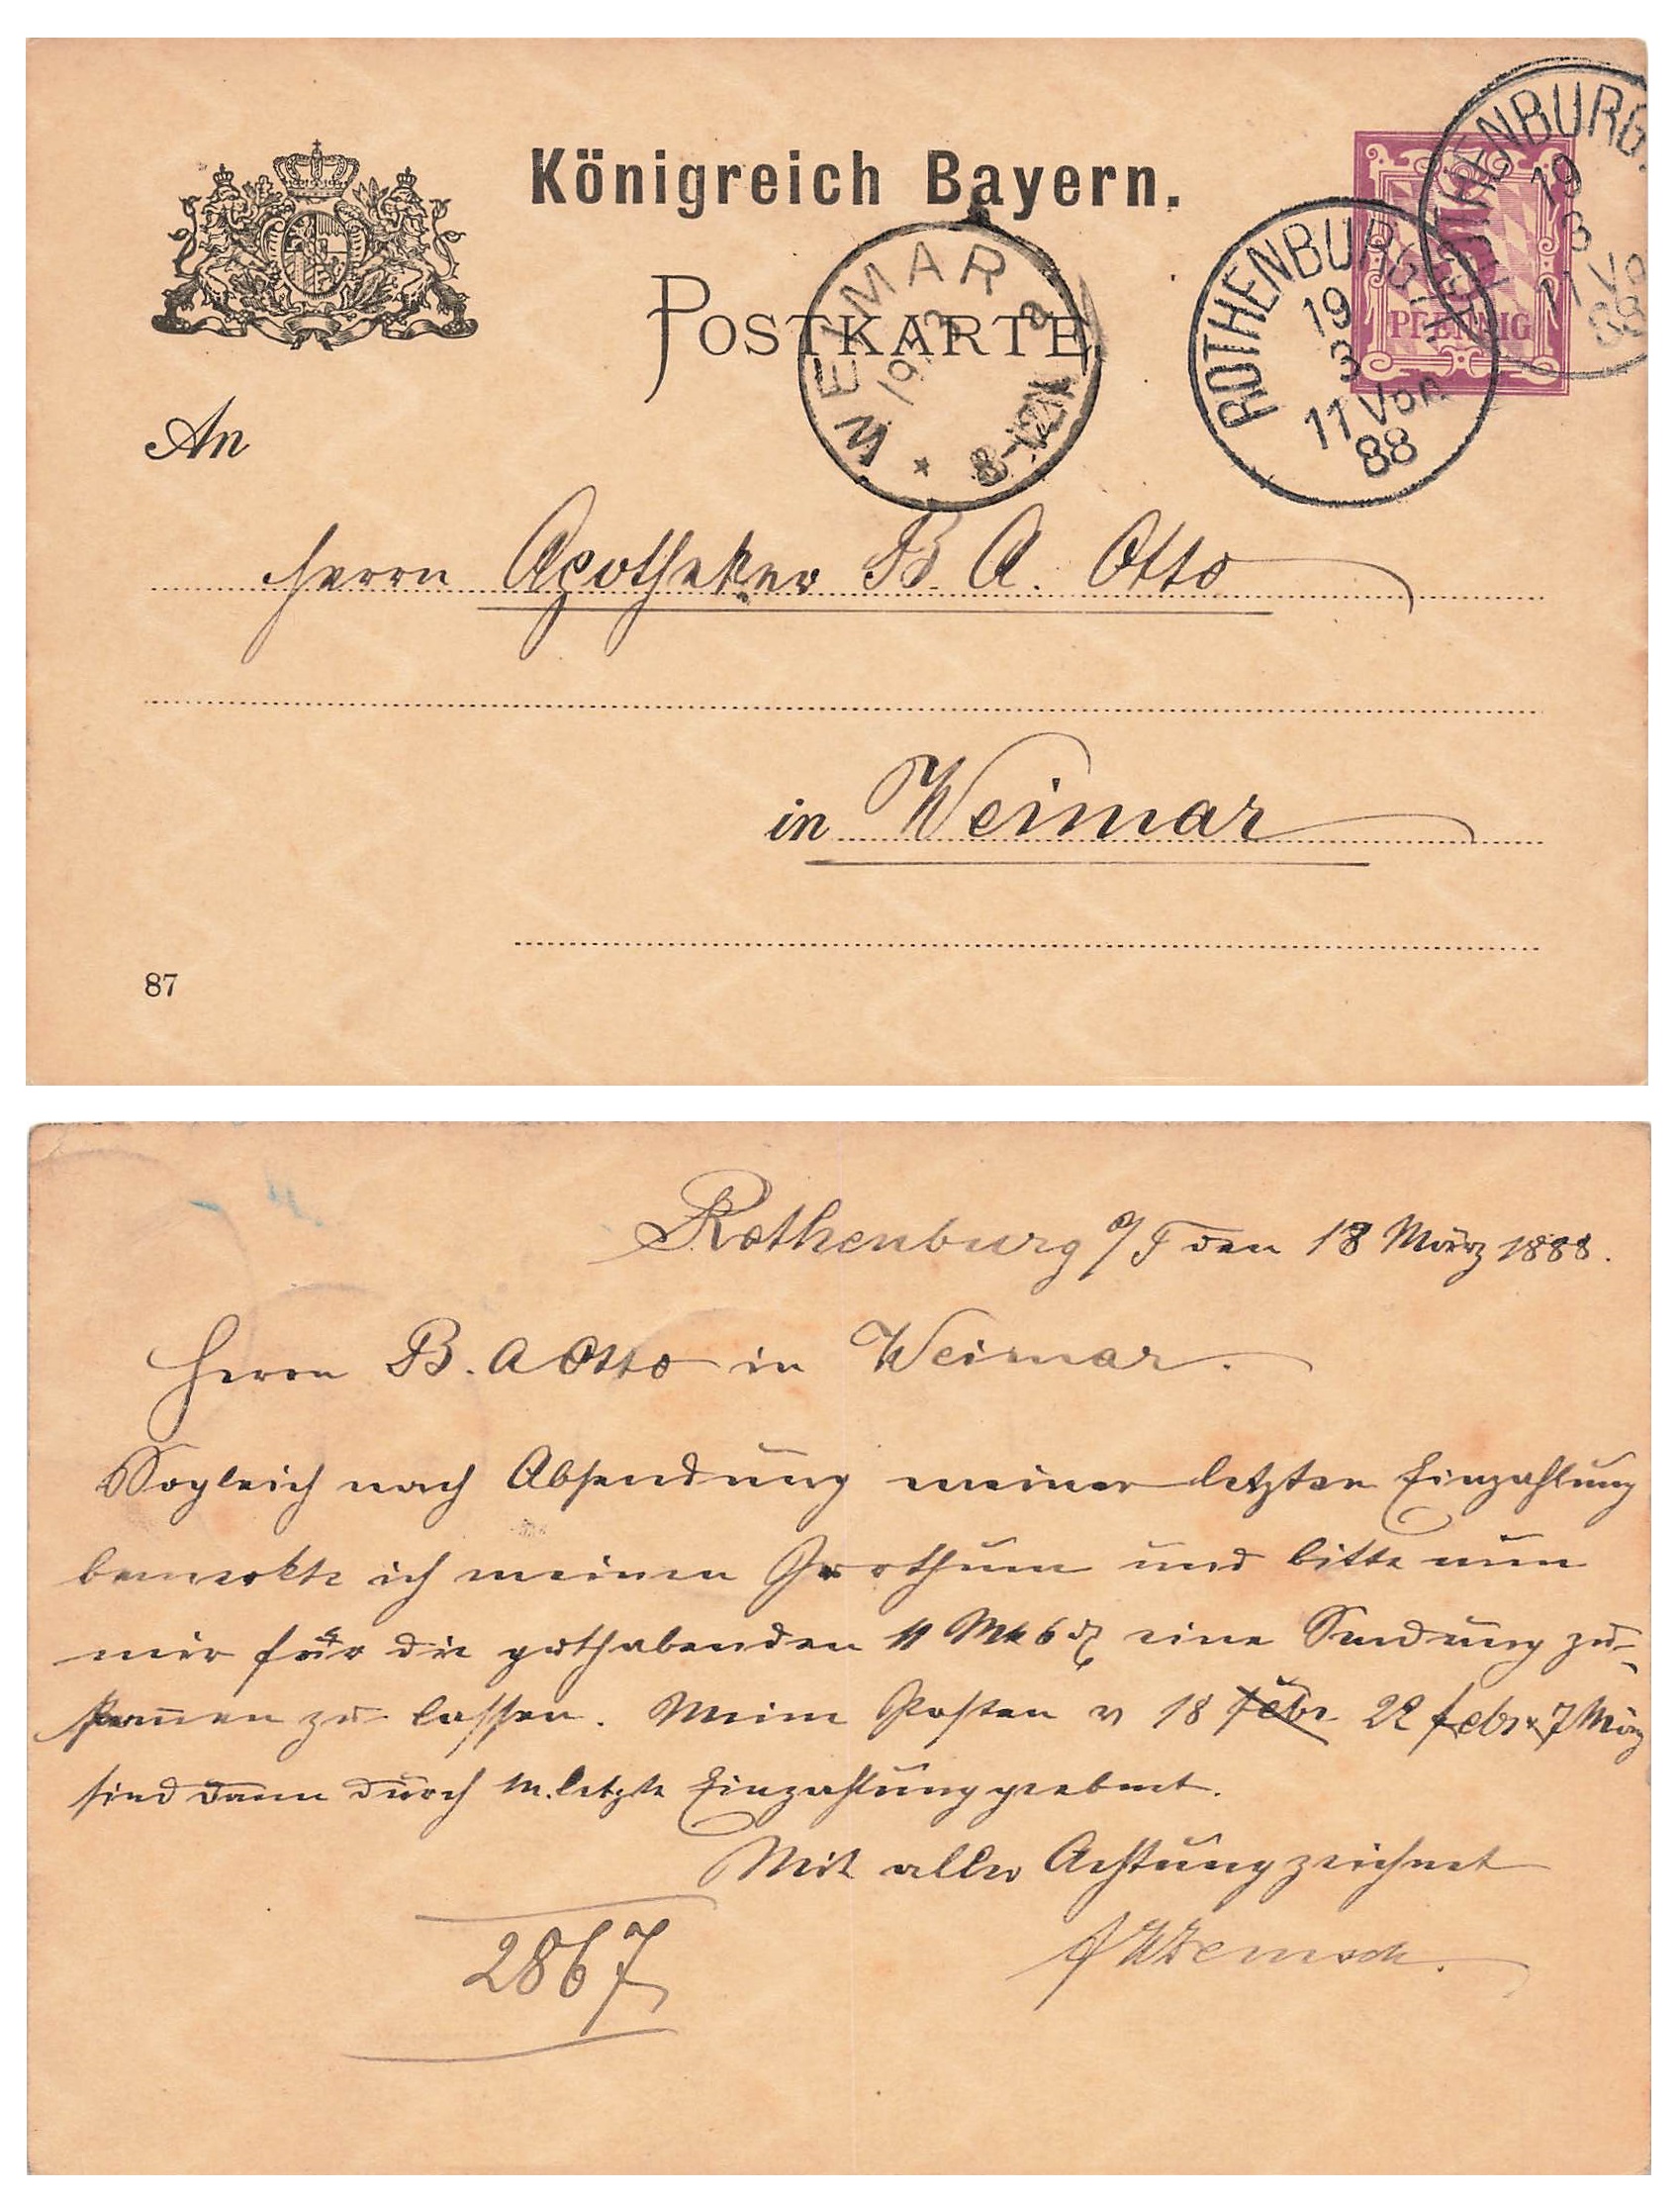 Königreich Bayern.
POSTKARTE
WEIMAR
19 3
8-12N
ROTHENBURG
19
3
11 Vor
88
ROTHENBURG
19
3
11 Vo
88
PFENNIG
An
Herrn Apotheker B. A. Otto
in Weimar
87
Rothenburg a/T den 18 März 1888.
Herrn B. A Otto in Weimar.
Sogleich nach Absendung meiner letzten Einzahlung
bemerkte ich meinen Irrthum und bitte nun
mir für die guthabenden 11 Mk 6 d eine Sendung zu-
kommen zu lassen. Meine Posten v 18 Febr 22 Febr & 7 März
sind dann durch m. letzte Einzahlung geebnet.
Mit aller Achtung zeichnet
2867